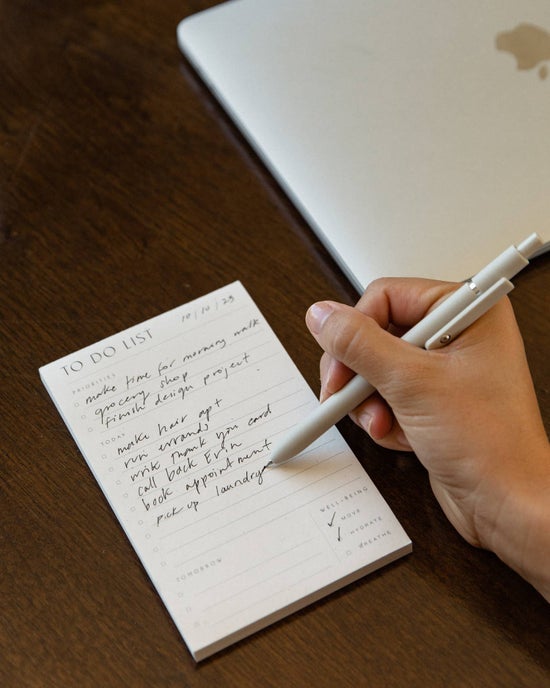 10/10/23
TO DO LIST
PRIORITIES
make time for morning walk
grocery shop
finish design project
TODAY
make hair apt
run errands
write thank you card
call back Erin
book appointment
pick up laundry
WELL-BEING
MOVE
HYDRATE
BREATHE
TOMORROW